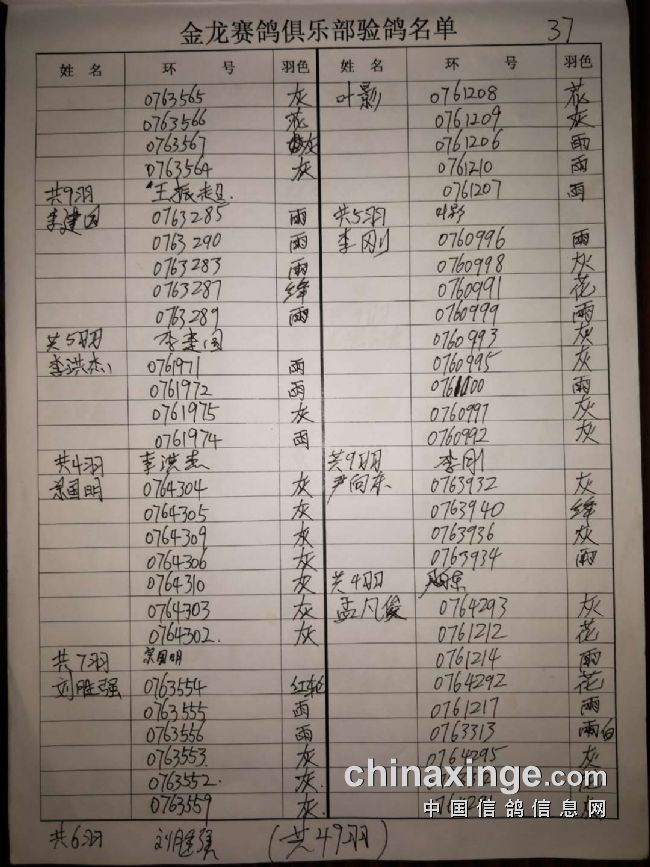 金龙赛鸽俱乐部验鸽名单
37
姓 名 环 号 羽色
0763565 灰
0763566 花
0763567
0763564 灰
共9羽 王振超
李建国 0763285 雨
0763290 雨
0763283 雨
0763287 绛
0763289 雨
共5羽 李建国
李洪杰 0761971 雨
0761972 雨
0761975 灰
0761974 雨
共4羽 李洪杰
景国明 0764304 灰
0764305 灰
0764309 灰
0764306 灰
0764310 灰
0764303 灰
0764302 灰
共7羽 景国明
刘胜强 0763554 红轮
0763555 雨
0763556 雨
0763553 灰
0763552 灰
0763559 灰
共6羽 刘胜强
姓 名 环 号 羽色
叶影 0761208 花
0761209 灰
0761206 雨
0761210 雨
0761207 雨
共5羽 叶影
李刚 0760996 雨
0760998 灰
0760991 花
0760999 雨
0760993 灰
0760995 灰
雨
0760997 灰
0760992 灰
共9羽 李刚
尹向东 0763932 灰
0763940 绛
0763936 灰
0763934 雨
共4羽
孟凡俊 0764293 灰
0761212 花
0761214 雨
0764292 花
0761217 雨
0763313 雨白
0764295 灰
(共49羽)
chinaxinge.com
中国信鸽信息网